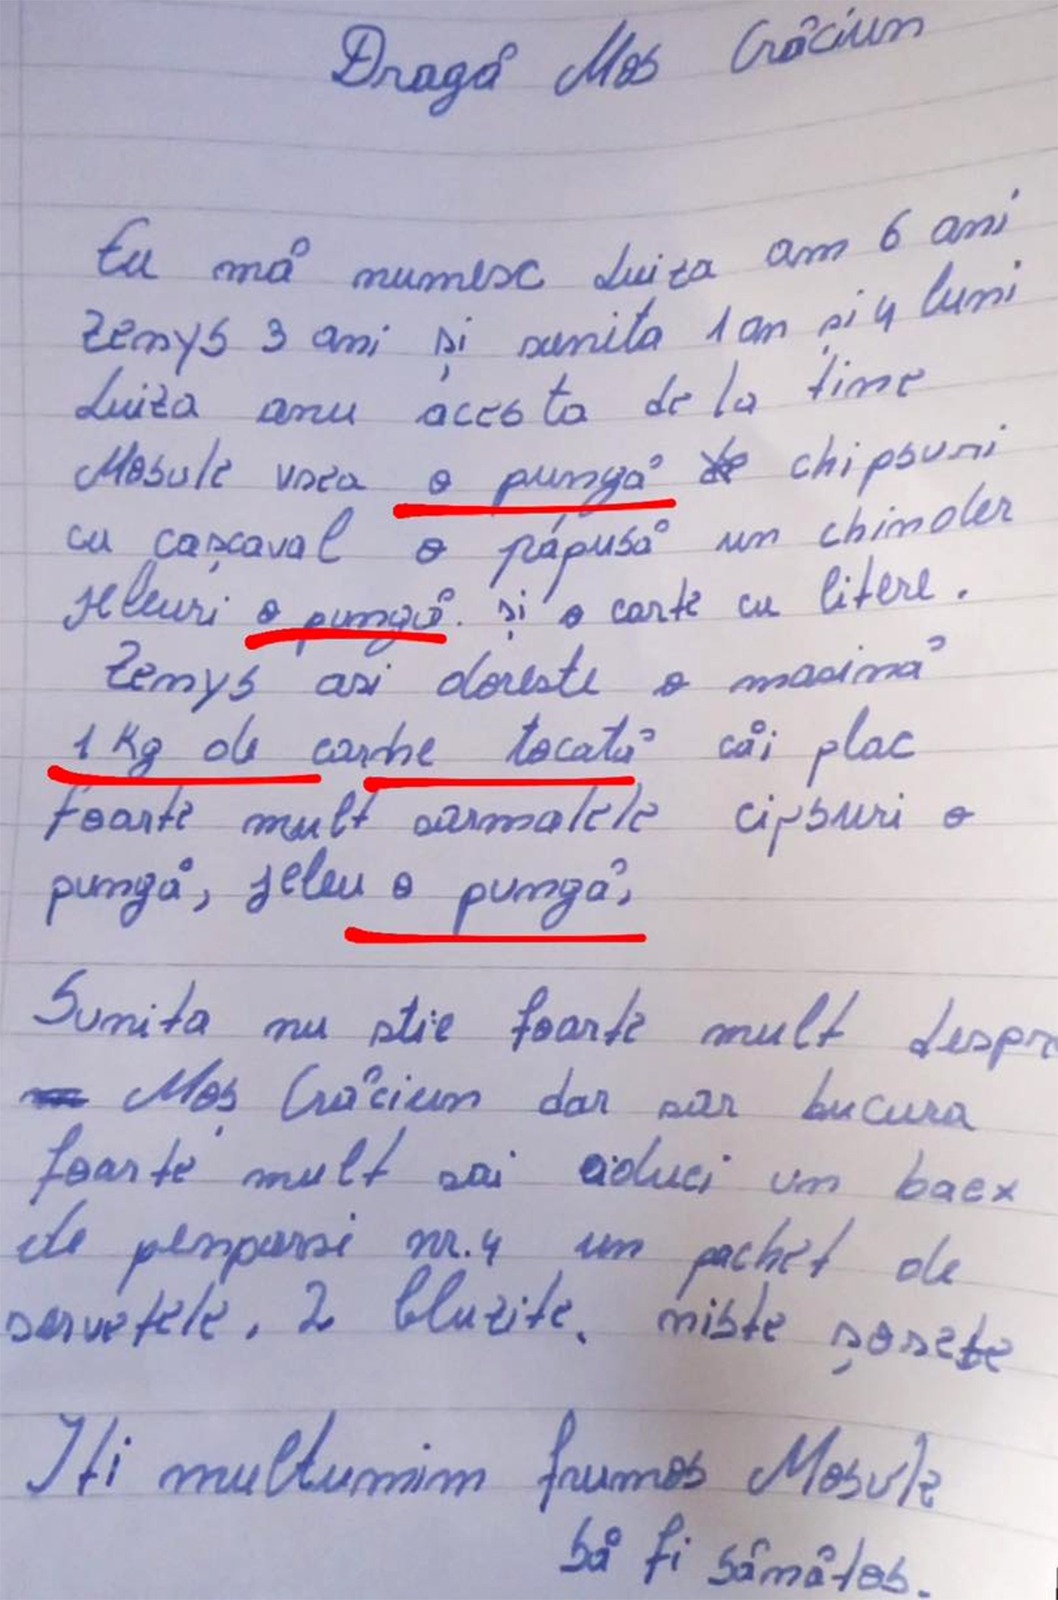 Dragă Mos Crăciun
Eu mă numesc Luiza am 6 ani
Zenys 3 ani și sunita 1 an și 4 luni
Luiza anu acesta de la tine
Mosule vrea o pungă de chipsuri
cu cașcaval o păpusă un chinder
jeleuri o pungă. și o carte cu litere.
Zenys asi doreste o masină
1 Kg de carne tocată căi plac
foarte mult sarmalele cipsuri o
pungă, jeleu o pungă,
Sunita nu stie foarte mult despre
Moș Crăciun dar sar bucura
foarte mult sai aduci un baex
de pemparsi nr. 4 un pachet de
servetele, 2 bluzite, niste șosete
Iti multumim frumos Mosule
să fi sănătos.